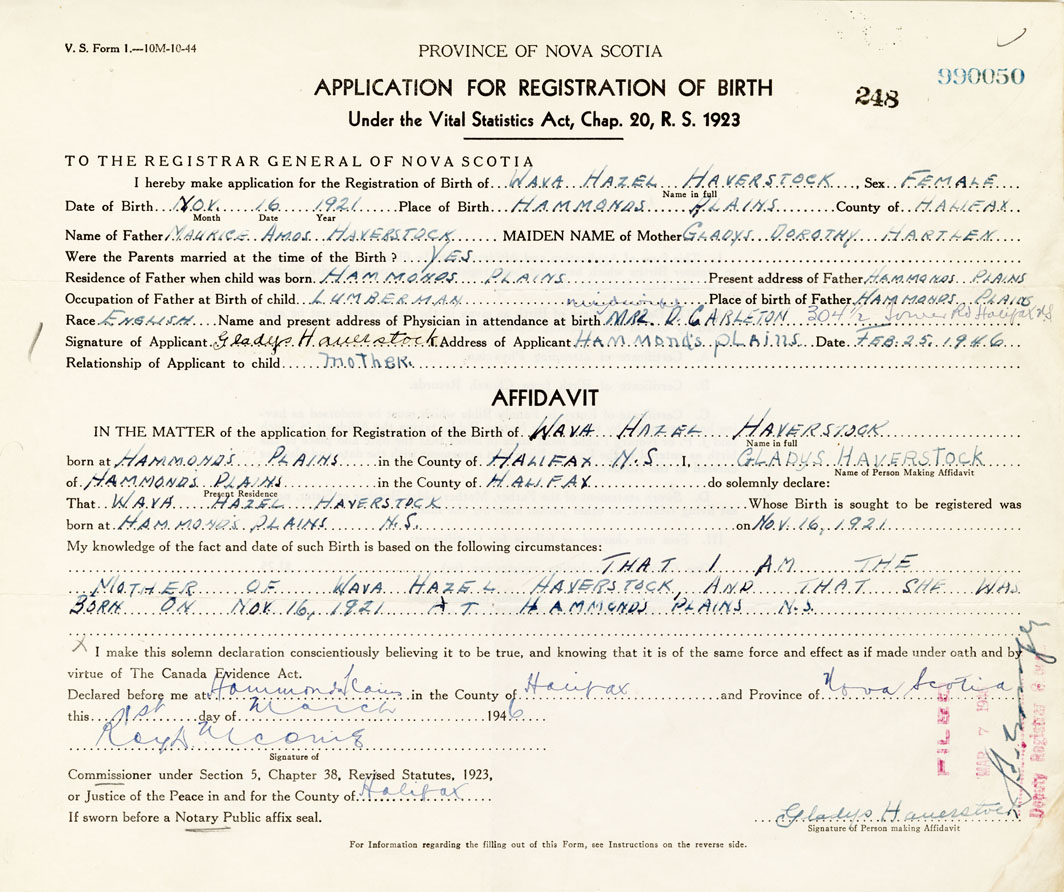 V. S. Form 1.—10M-10-44
PROVINCE OF NOVA SCOTIA
990050
APPLICATION FOR REGISTRATION OF BIRTH
248
Under the Vital Statistics Act, Chap. 20, R. S. 1923
TO THE REGISTRAR GENERAL OF NOVA SCOTIA
I hereby make application for the Registration of Birth of WAVA HAZEL HAVERSTOCK, Sex FEMALE
Name in full
Date of Birth NOV. 16 1921 Place of Birth HAMMONDS PLAINS County of HALIFAX
Month Date Year
Name of Father MAURICE AMOS HAVERSTOCK MAIDEN NAME of Mother GLADYS DOROTHY HARTLEN
Were the Parents married at the time of the Birth? YES
Residence of Father when child was born HAMMONDS PLAINS Present address of Father HAMMONDS PLAINS
Occupation of Father at Birth of child LUMBERMAN Place of birth of Father HAMMONDS PLAINS
midwife
Race ENGLISH Name and present address of Physician in attendance at birth MRS. D. CARLETON 304½ Tower Rd Halifax NS
Signature of Applicant Gladys Haverstock Address of Applicant HAMMONDS PLAINS Date FEB. 25. 1946
Relationship of Applicant to child MOTHER.
AFFIDAVIT
IN THE MATTER of the application for Registration of the Birth of WAVA HAZEL HAVERSTOCK
Name in full
born at HAMMONDS PLAINS in the County of HALIFAX N.S. I, GLADYS HAVERSTOCK
Name of Person Making Affidavit
of HAMMONDS PLAINS in the County of HALIFAX do solemnly declare:
Present Residence
That WAVA HAZEL HAVERSTOCK Whose Birth is sought to be registered was
born at HAMMONDS PLAINS N.S. on NOV. 16, 1921
My knowledge of the fact and date of such Birth is based on the following circumstances:
THAT I AM THE
MOTHER OF WAVA HAZEL HAVERSTOCK, AND THAT SHE WAS
BORN ON NOV. 16, 1921 AT HAMMONDS PLAINS N.S.
X I make this solemn declaration conscientiously believing it to be true, and knowing that it is of the same force and effect as if made under oath and by
virtue of The Canada Evidence Act.
Declared before me at Hammonds Plains in the County of Halifax and Province of Nova Scotia
this 1st day of March 1946
Signature of
Commissioner under Section 5, Chapter 38, Revised Statutes, 1923,
or Justice of the Peace in and for the County of Halifax
If sworn before a Notary Public affix seal.
FILED
MAR 7
Deputy Registrar
Gladys Haverstock
Signature of Person making Affidavit
For Information regarding the filling out of this Form, see Instructions on the reverse side.